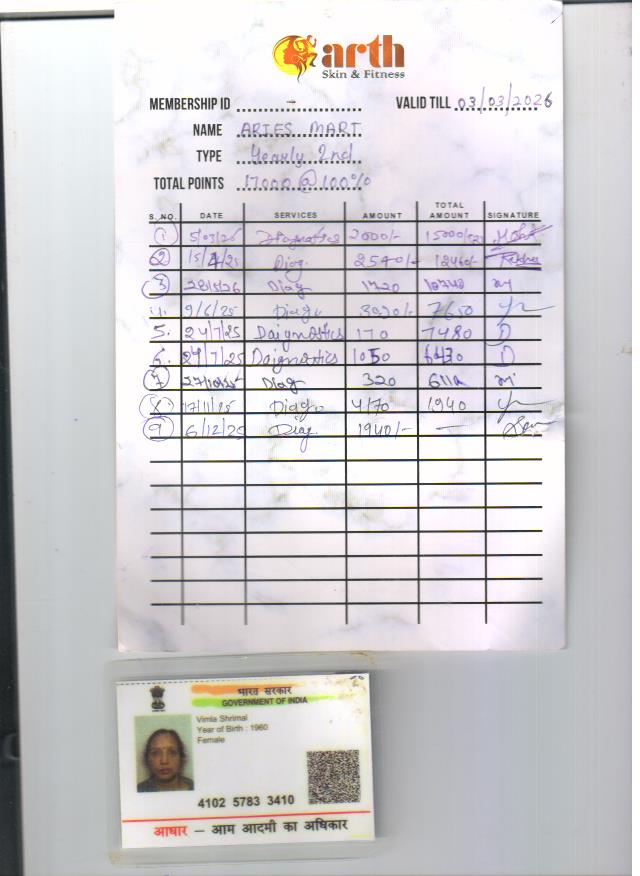 arth
Skin & Fitness
MEMBERSHIP ID VALID TILL 03/03/2026
NAME ARIES MART
TYPE Yearly 2nd
TOTAL POINTS 17000 @ 100%
S. NO. DATE SERVICES AMOUNT TOTAL AMOUNT SIGNATURE
1 5/03/25 Diagnostics 2000/- 15000/-
2 15/4/25 Diag. 2540/- 12460/-
3 Diag 1720 10740
4. 9/6/25 Diag. 3090/- 7650
5. 24/7/25 Daignostics 170 7480
6. 29/7/25 Daignostics 1050 6430
7 27/10/25 Diag 320 6110
8 17/11/25 Diag. 4170 1940
9 6/12/25 Diag. 1940/- —
भारत सरकार
GOVERNMENT OF INDIA
Vimla Shrimal
Year of Birth : 1960
Female
4102 5783 3410
आधार – आम आदमी का अधिकार